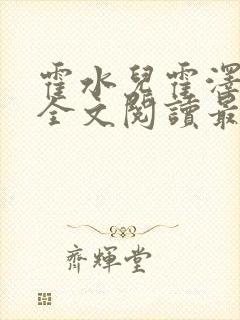 霍水兒霍澤
全文閱讀最
齊輝堂